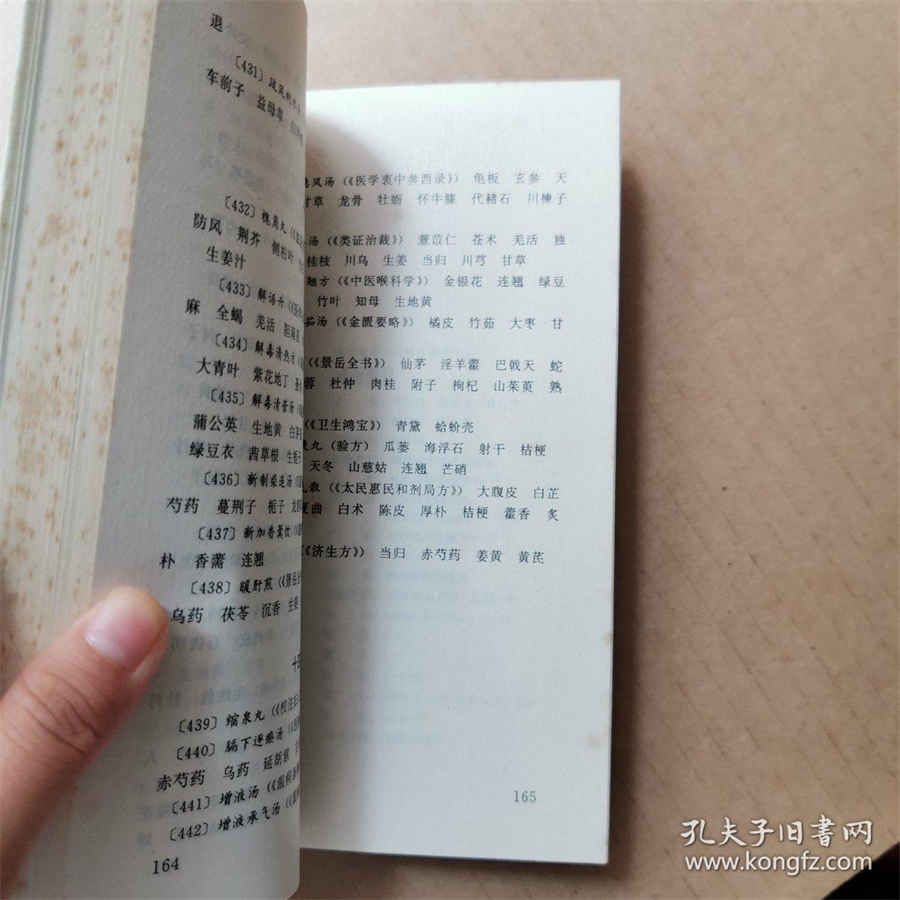 退
〔431〕疏风
车前子 益母草
〔432〕槐角丸
防风 荆芥 侧柏叶
生姜汁
〔433〕解语丹
麻 全蝎 羌活 胆南星
〔434〕解毒清热方
大青叶 紫花地丁
〔435〕解毒清营汤
蒲公英 生地黄 白茅
绿豆衣 茜草根 生栀子
〔436〕新制柴连汤
芍药 蔓荆子 栀子 龙
〔437〕新加香薷饮
朴 香薷 连翘
〔438〕暖肝煎
乌药 茯苓 沉香 生姜
十四
〔439〕缩泉丸
〔440〕膈下逐瘀汤
赤芍药 乌药 延胡索
〔441〕增液汤
〔442〕增液承气汤
164
熄风汤(《医学衷中参西录》) 龟板 玄参 天
甘草 龙骨 牡蛎 怀牛膝 代赭石 川楝子
汤(《类证治裁》) 薏苡仁 苍术 羌活 独
桂枝 川乌 生姜 当归 川芎 甘草
翘方(《中医喉科学》) 金银花 连翘 绿豆
竹叶 知母 生地黄
茹汤(《金匮要略》) 橘皮 竹茹 大枣 甘
《景岳全书》) 仙茅 淫羊藿 巴戟天 蛇
蓉 杜仲 肉桂 附子 枸杞 山茱萸 熟
《卫生鸿宝》) 青黛 蛤蚧壳
丸(验方) 瓜蒌 海浮石 射干 桔梗
天冬 山慈姑 连翘 芒硝
气散(《太民惠民和剂局方》) 大腹皮 白芷
夏曲 白术 陈皮 厚朴 桔梗 藿香 炙
《济生方》) 当归 赤芍药 姜黄 黄芪
165
孔夫子旧书网
www.kongfz.com